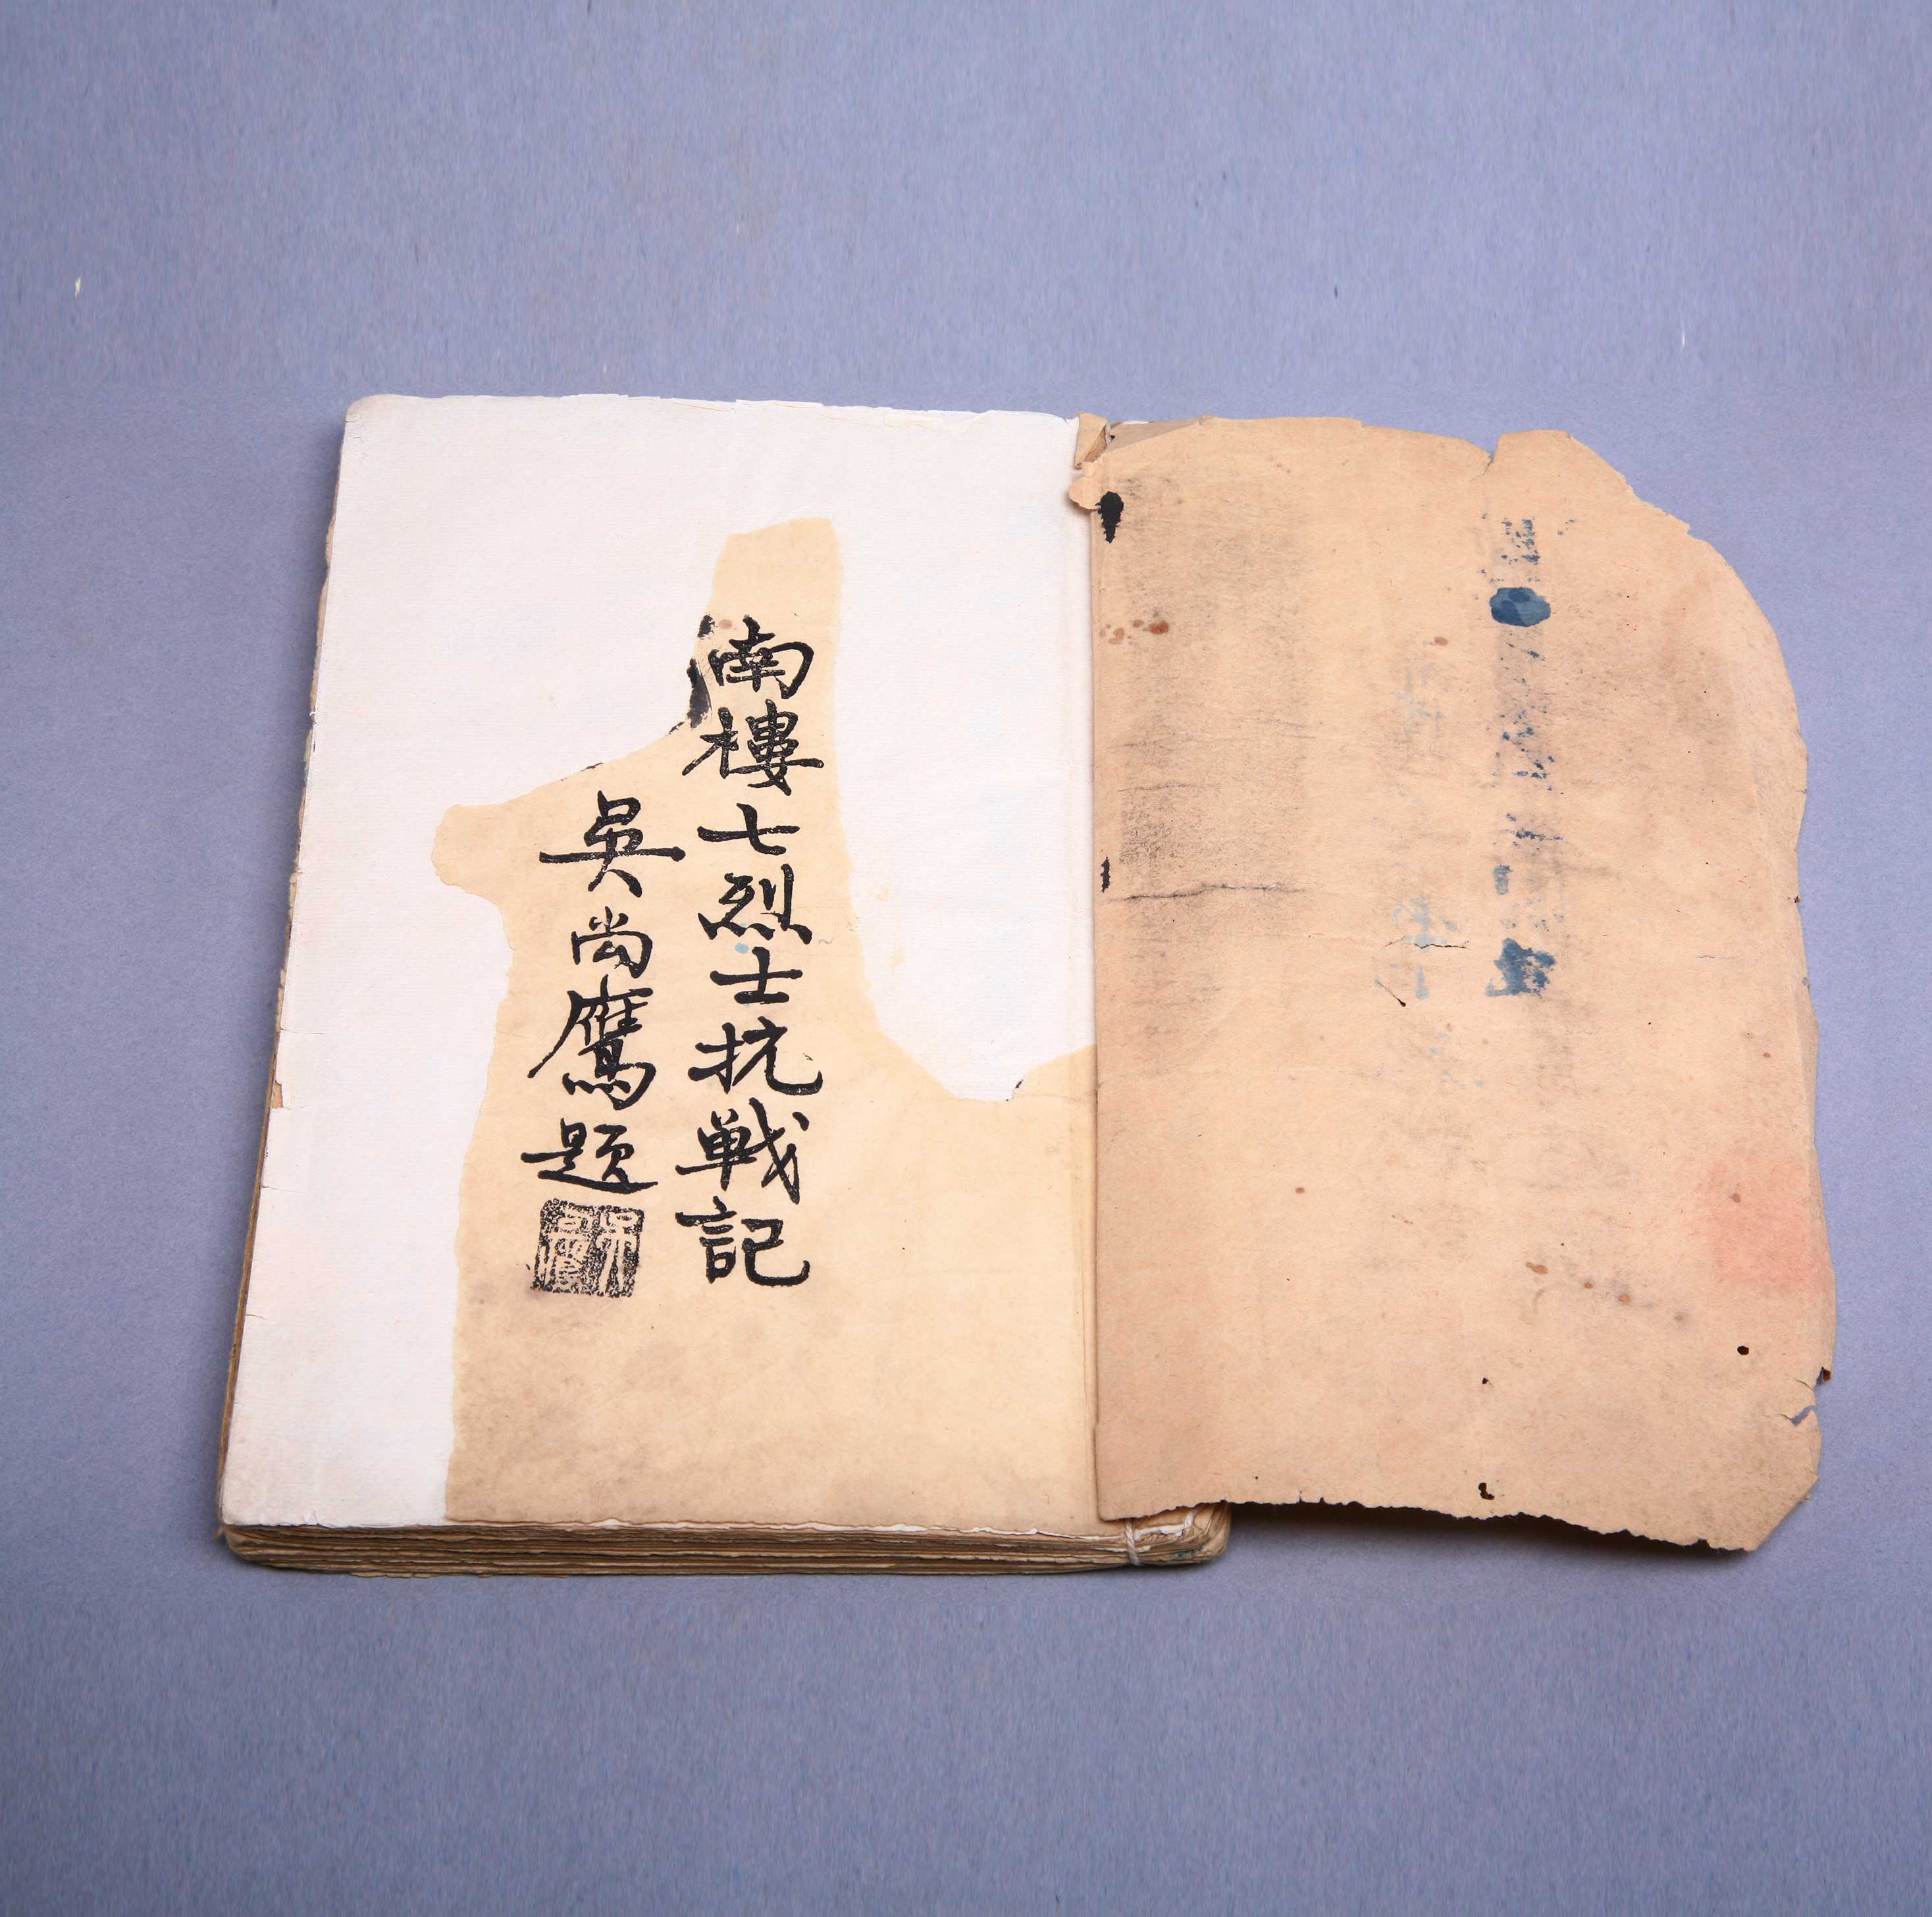 南樓七烈士抗戰記
吳尚鷹題